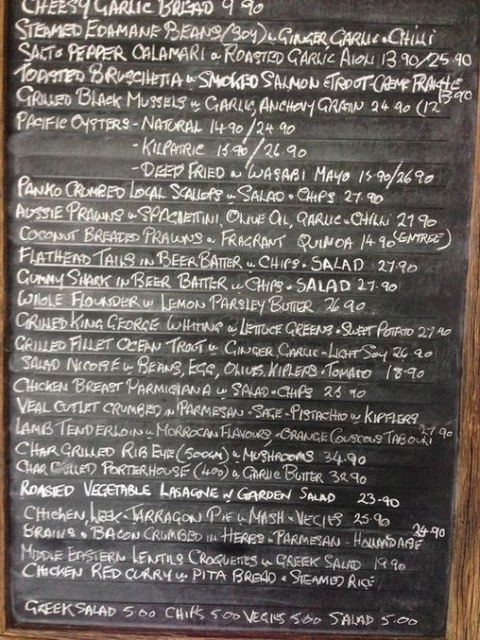 CHEESY GARLIC BREAD 9.90
STEAMED EDAMANE BEANS/SOY) w GINGER, GARLIC + CHILLI
SALT & PEPPER CALAMARI w ROASTED GARLIC AIOLI 13.90/25.90
TOASTED BRUSCHETTA w SMOKED SALMON + TROUT - CREME FRAICHE
13.90
GRILLED BLACK MUSSELS w GARLIC, ANCHOVY GRATIN 24.90 (12
PACIFIC OYSTERS - NATURAL 14.90/24.90
- KILPATRIC 15.90/26.90
- DEEP FRIED w WASABI MAYO 15.90/26.90
PANKO CRUMBED LOCAL SCALLOPS w SALAD + CHIPS 27.90
AUSSIE PRAWNS w SPAGHETINI, OLIVE OIL, GARLIC + CHILLI 27.90
COCONUT BREADED PRAWNS w FRAGRANT QUINOA 14.90 (ENTREE)
FLATHEAD TAILS IN BEER BATTER w CHIPS + SALAD 27.90
GUMMY SHARK IN BEER BATTER w CHIPS + SALAD 27.90
WHOLE FLOUNDER w LEMON PARSLEY BUTTER 26.90
GRILLED KING GEORGE WHITING w LETTUCE GREENS + SWEET POTATO 27.90
GRILLED FILLET OCEAN TROUT w GINGER, GARLIC + LIGHT SOY 26.90
SALAD NICOISE w BEANS, EGG, OLIVES, KIPLERS + TOMATO 18.90
CHICKEN BREAST PARMIGIANA w SALAD + CHIPS 25.90
VEAL CUTLET CRUMBED IN PARMESAN - SAGE - PISTACHIO w KIPFLERS
27.90
LAMB TENDERLOIN w MORROCAN FLAVOURS - ORANGE COUSCOUS TABOULI
CHAR GRILLED RIB EYE (500GM) w MUSHROOMS 34.90
CHAR GRILLED PORTERHOUSE (400) w GARLIC BUTTER 32.90
ROASTED VEGETABLE LASAGNE w GARDEN SALAD 23.90
CHICKEN, LEEK + TARRAGON PIE w MASH + VEGIES 25.90
BRAINS + BACON CRUMBED IN HERBS + PARMESAN - HOLLANDAISE 24.90
MIDDLE EASTERN LENTILS CROQUETTES w GREEK SALAD 19.90
CHICKEN RED CURRY w PITA BREAD + STEAMED RICE
GREEK SALAD 5.00 CHIPS 5.00 VEGIES 5.00 SALAD 5.00